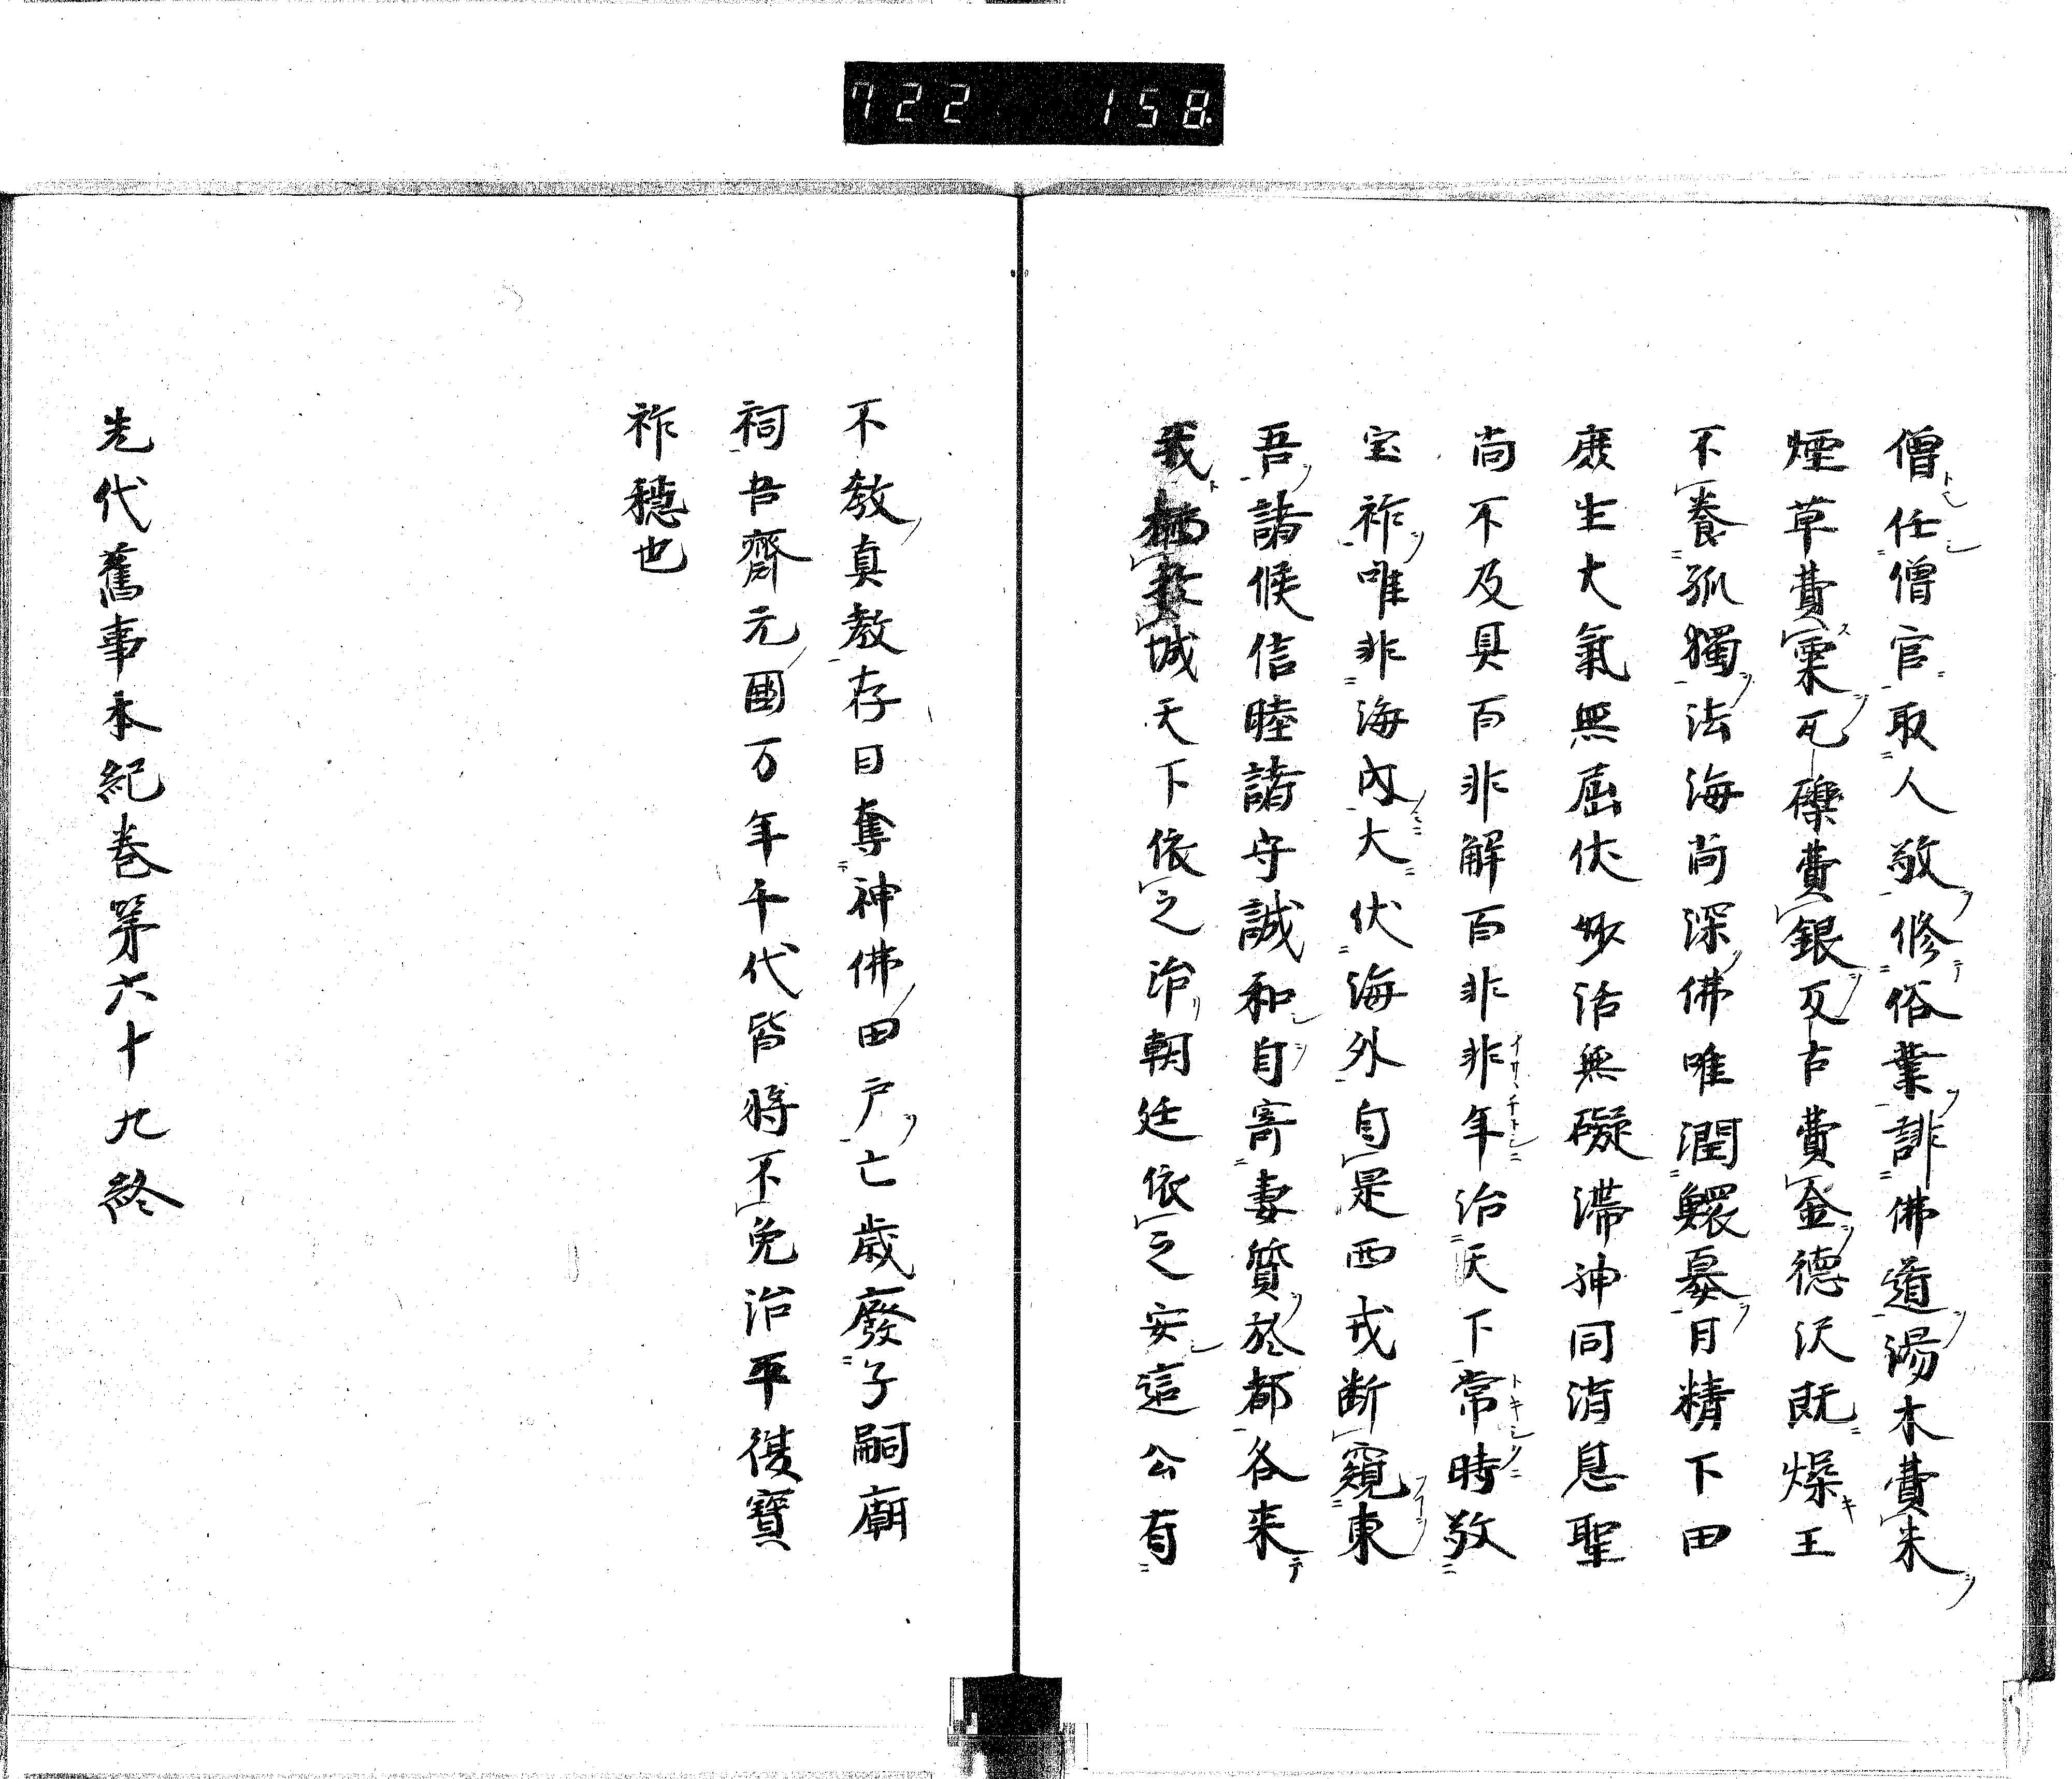 722 158
僧任僧官取人敬修俗業誹佛道湯木費米
煙草費粟瓦礫費銀及古費金德沢既燥王
不養孤獨法海尚深佛唯潤鰥寡月精下田
庶生大氣無屈伏妙活無礙滯神同消息聖
尚不及具百非解百非非年治天下常時敬
宝祚唯非海内大伏海外自是西戎断窺東
吾諸候信睦諸守誠和自寄妻質於都各来
我 城天下依之治朝廷依之安這公有
不教真教存日奪神佛田戸亡歳廢子嗣廟
祠吾齋元國万年千代皆將不免治平復寶
祚穏也
先代舊事本紀巻第六十九終